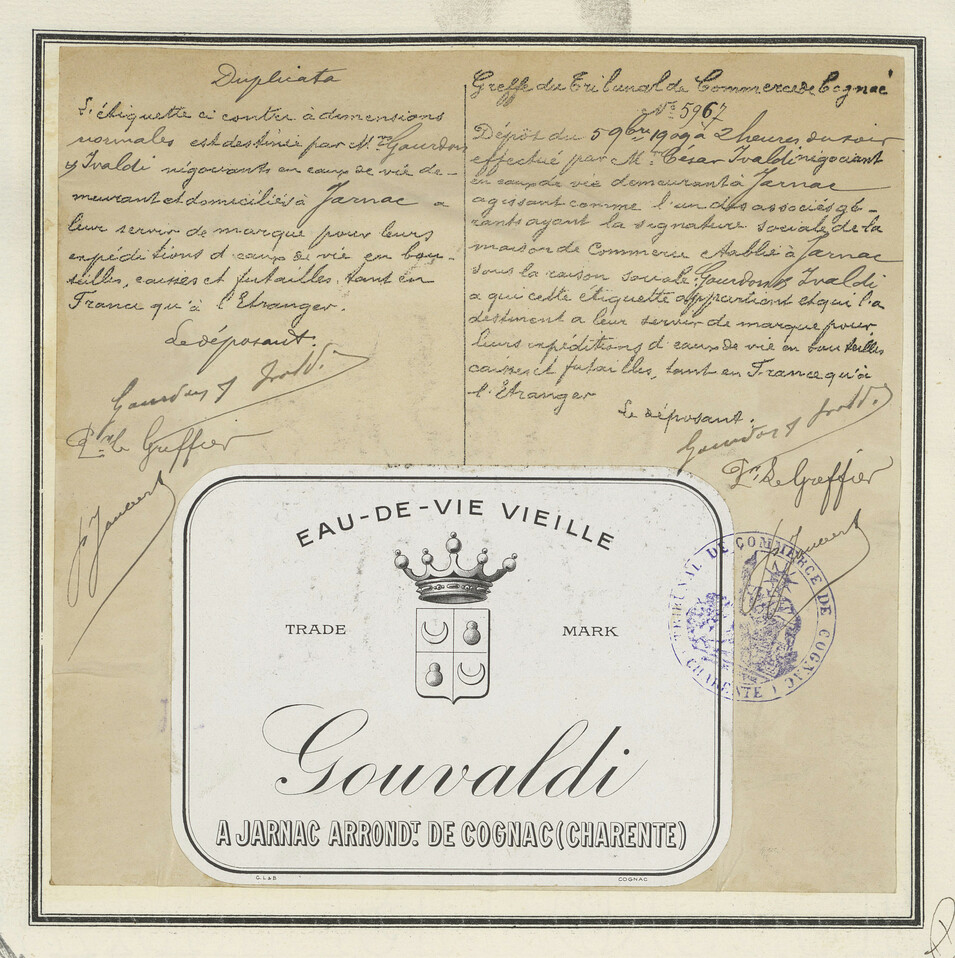 Duplicata
L'étiquette ci contre à dimensions
normales est destinée par M.rs Gourdon
& Ivaldi négociants en eaux de vie de-
meurant et domiciliés à Jarnac a
leur servir de marque pour leurs
expéditions d'eaux de vie en bou-
teilles, caisses et futailles, tant en
France qu'à l'Etranger.
Le déposant.
Gourdon & Ivaldi.
P.r le Greffier
Greffe du Tribunal de Commerce de Cognac
N.o 5967
Dépôt du 5 9bre 1909 à 2 heures du soir
effectué par M.r César Ivaldi négociant
en eaux de vie demeurant à Jarnac
agissant comme l'un des associés gé-
rants ayant la signature sociale de la
maison de Commerce établie à Jarnac
sous la raison sociale Gourdon & Ivaldi
a qui cette étiquette appartient et qui l'a
destinent a leur servir de marque pour
leurs expéditions d'eaux de vie en bouteilles
caisses et futailles, tant en France qu'à
l'Etranger
Le déposant.
Gourdon & Ivaldi
P.r Le Greffier
EAU-DE-VIE VIEILLE
TRADE MARK
Gouvaldi
A JARNAC ARRONDT. DE COGNAC (CHARENTE)
G. L & B COGNAC
TRIBUNAL DE COMMERCE DE COGNAC
(CHARENTE)